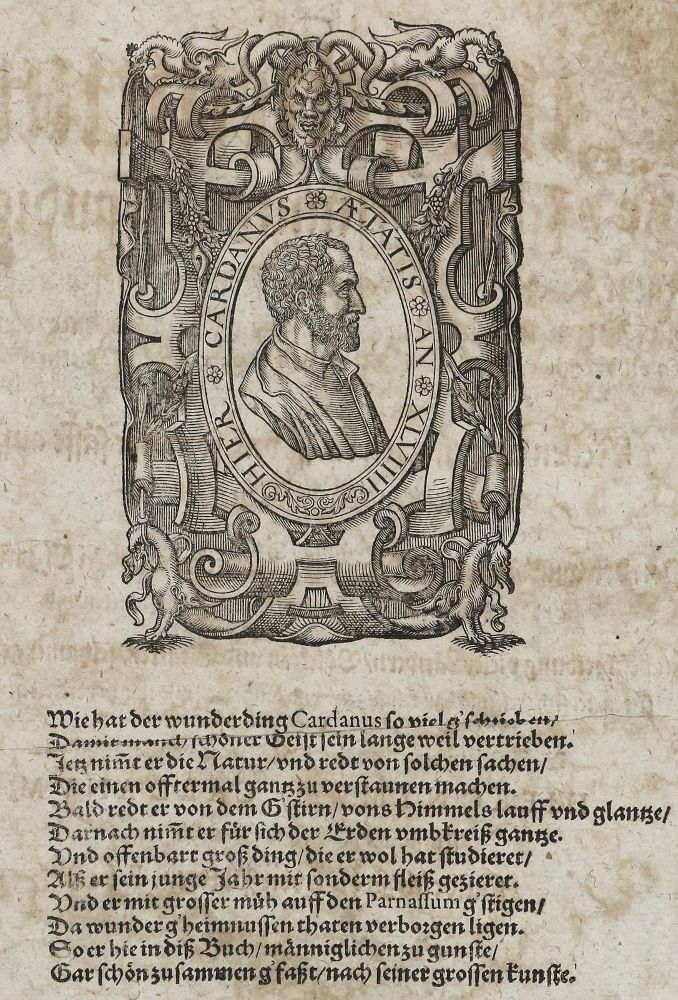 HIER CARDANVS ÆTATIS AN XLVIIII
Wie hat der wunderding Cardanus so viel g'schrieben/
Damit manch schöner Geist sein lange weil vertrieben.
Jetz nim̄t er die Natur/ vnd redt von solchen sachen/
Die einen offtermal gantz zu verstaunen machen.
Bald redt er von dem G'stirn/ vons Himmels lauff vnd glantze/
Darnach nim̄t er für sich der Erden vmbkreiß gantze.
Vnd offenbart groß ding/ die er wol hat studieret/
Alß er sein junge Jahr mit sonderm fleiß gezieret.
Vnd er mit grosser müh auff den Parnassum g'stigen/
Da wunder g'heimnussen thaten verborgen ligen.
So er hie in diß Buch/ männiglichen zu gunste/
Gar schön zusammen g'faßt/ nach seiner grossen kunste.